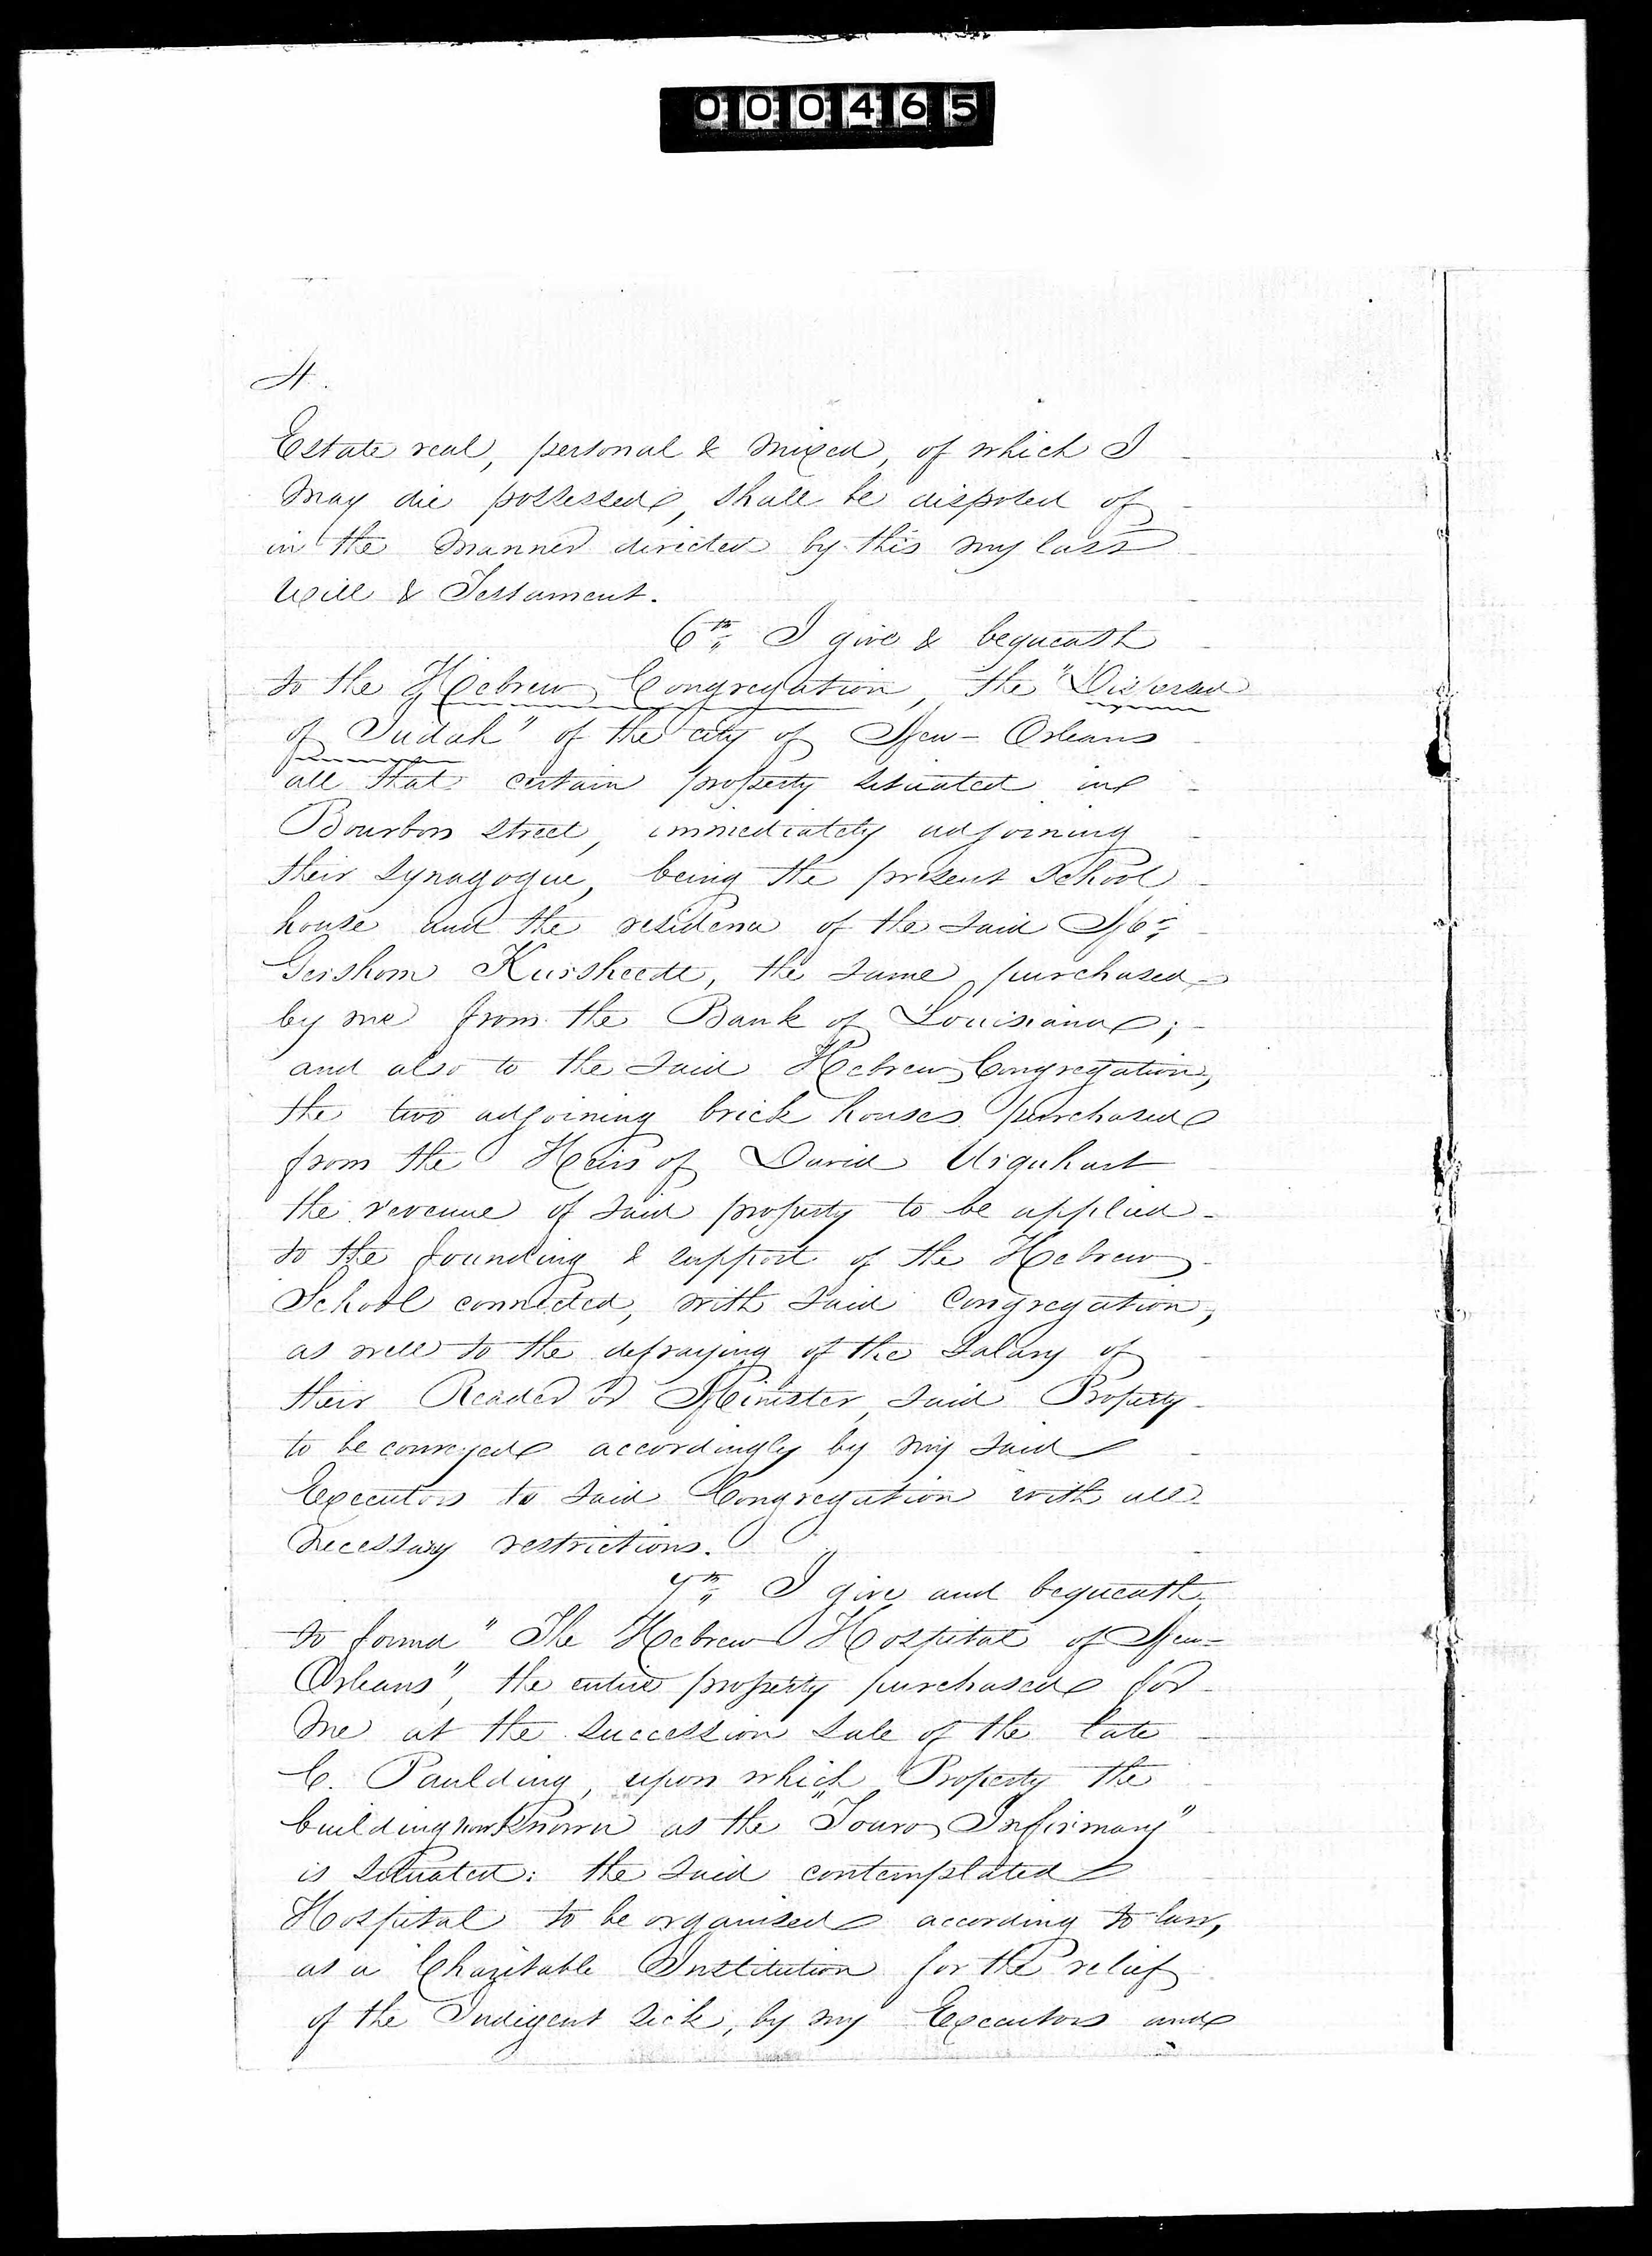 000465
4.
Estate real, personal & mixed, of which I
may die possessed, shall be disposed of
in the manner directed by this my last
Will & Testament.
6th, I give & bequeath
to the Hebrew Congregation, the "Dispersed
of Judah" of the city of New-Orleans
all that certain property situated in
Bourbon Street, immediately adjoining
their Synagogue, being the present School
house and the residence of the said Mr.
Gershom Kursheedt, the same purchased
by me from the Bank of Louisiana;
and also to the said Hebrew Congregation,
the two adjoining brick houses purchased
from the Heirs of David Urquhart
the revenue of said property to be applied
to the founding & support of the Hebrew
School connected, with said Congregation,
as well to the defraying of the Salary of
their Reader or Minister, said Property
to be conveyed accordingly by my said
Executors to said Congregation with all
necessary restrictions.
7th, I give and bequeath
to found "The Hebrew Hospital of New-
Orleans", the entire property purchased for
me at the succession sale of the late
C. Paulding, upon which Property the
building now Known as the "Touro Infirmary"
is situated: the said contemplated
Hospital to be organised according to law,
as a Charitable Institution for the relief
of the Indigent Sick, by my Executors and